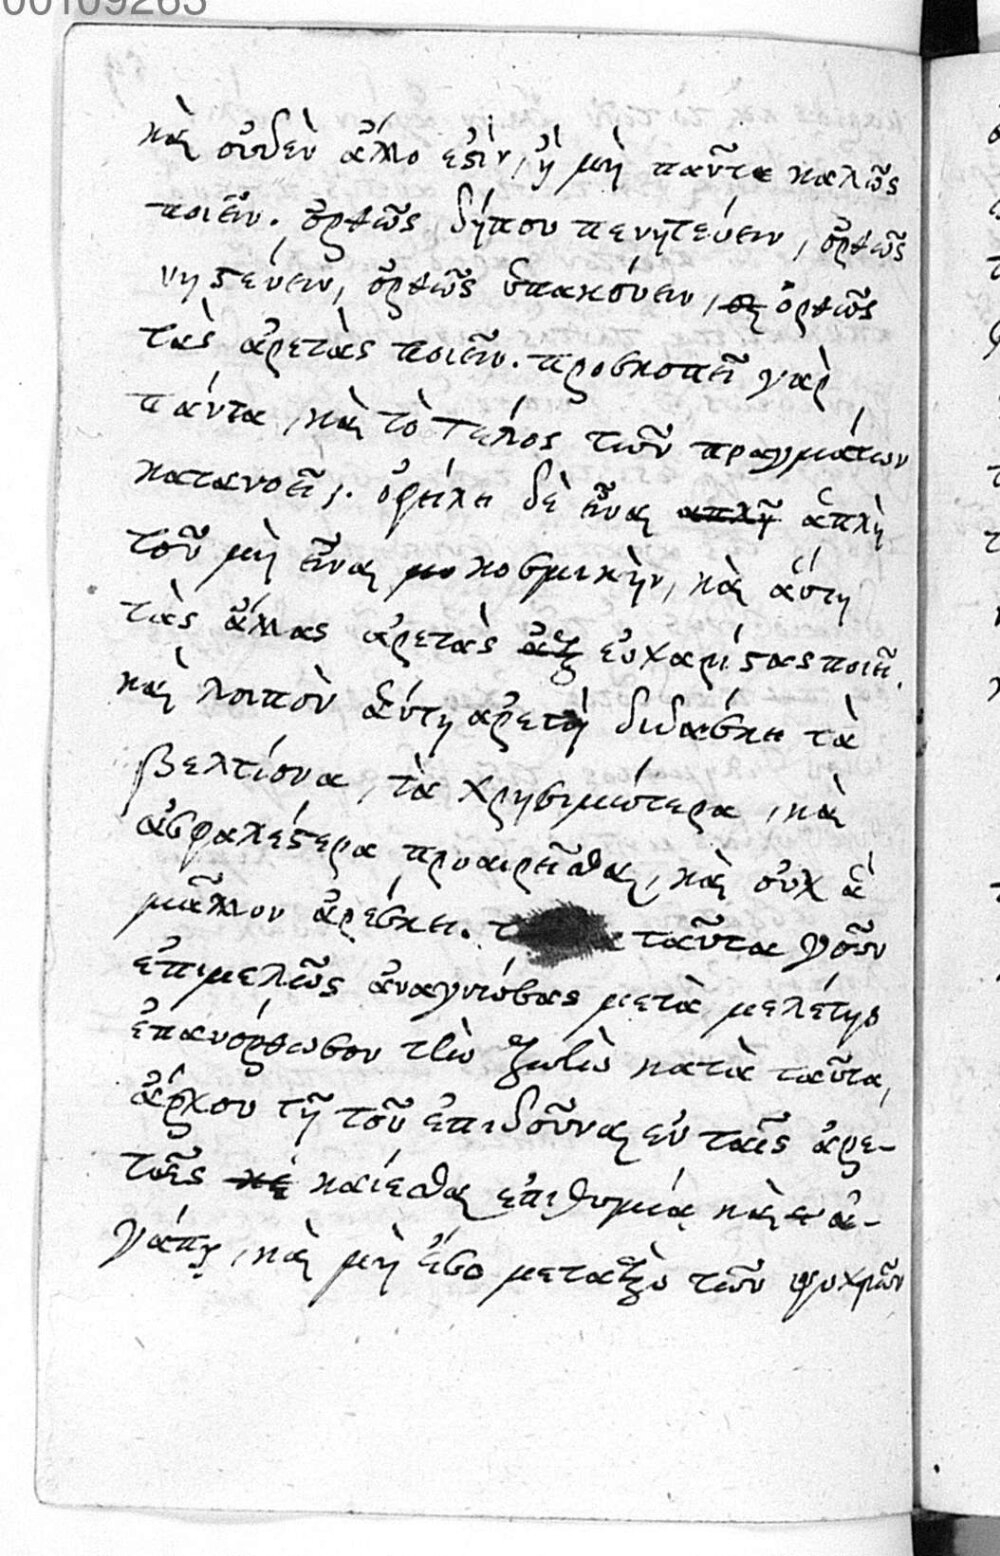 00109263
καὶ οὐδὲν ἄλλο ἐστὶν, ἢ μὴ πάντα καλῶς
ποιεῖν. ὀρθῶς δήπου πενητεύειν, ὀρθῶς
νηστεύειν, ὀρθῶς ὑπακούειν, ὀρθῶς
τὰς ἀρετὰς ποιεῖν. προσκοπεῖ γὰρ
πάντα, καὶ τὸ τέλος τῶν πραγμάτων
κατανοεῖ. ὀφείλει δὲ εἶναι ἁπλῆ ἁπλὴ
τοῦ μὴ εἶναι κοσμικὴν, καὶ αὕτη
τὰς ἄλλας ἀρετὰς εὐχαρίστας ποιεῖ.
καὶ λοιπὸν αὕτη ἀρετὴ διδάσκει τὰ
βελτίονα, τὰ χρησιμώτερα, καὶ
ἀσφαλέστερα προαιρεῖσθαι, καὶ οὐχ ἃ
μᾶλλον ἀρέσκει. ταῦτα γοῦν
ἐπιμελῶς ἀναγνώσας μετὰ μελέτης
ἐπανόρθωσον τὴν ζωὴν κατὰ ταῦτα,
ἄρχου τῇ τοῦ ἐπιδοῦναι ἐν ταῖς ἀρε-
ταῖς καίεσθαι ἐπιθυμίᾳ καὶ ἀ-
γάπῃ, καὶ μὴ ἔσο μεταξὺ τῶν ψυχρῶν